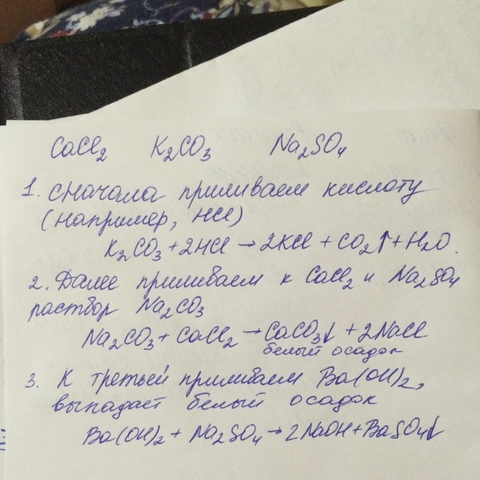 CaCl₂ K₂CO₃ Na₂SO₄
1. Сначала приливаем кислоту
(например, HCl)
K₂CO₃ + 2HCl → 2KCl + CO₂↑ + H₂O.
2. Далее приливаем к CaCl₂ и Na₂SO₄
раствор Na₂CO₃
Na₂CO₃ + CaCl₂ → CaCO₃↓ + 2NaCl
белый осадок
3. К третьей приливаем Ba(OH)₂,
выпадает белый осадок
Ba(OH)₂ + Na₂SO₄ → 2NaOH + BaSO₄↓